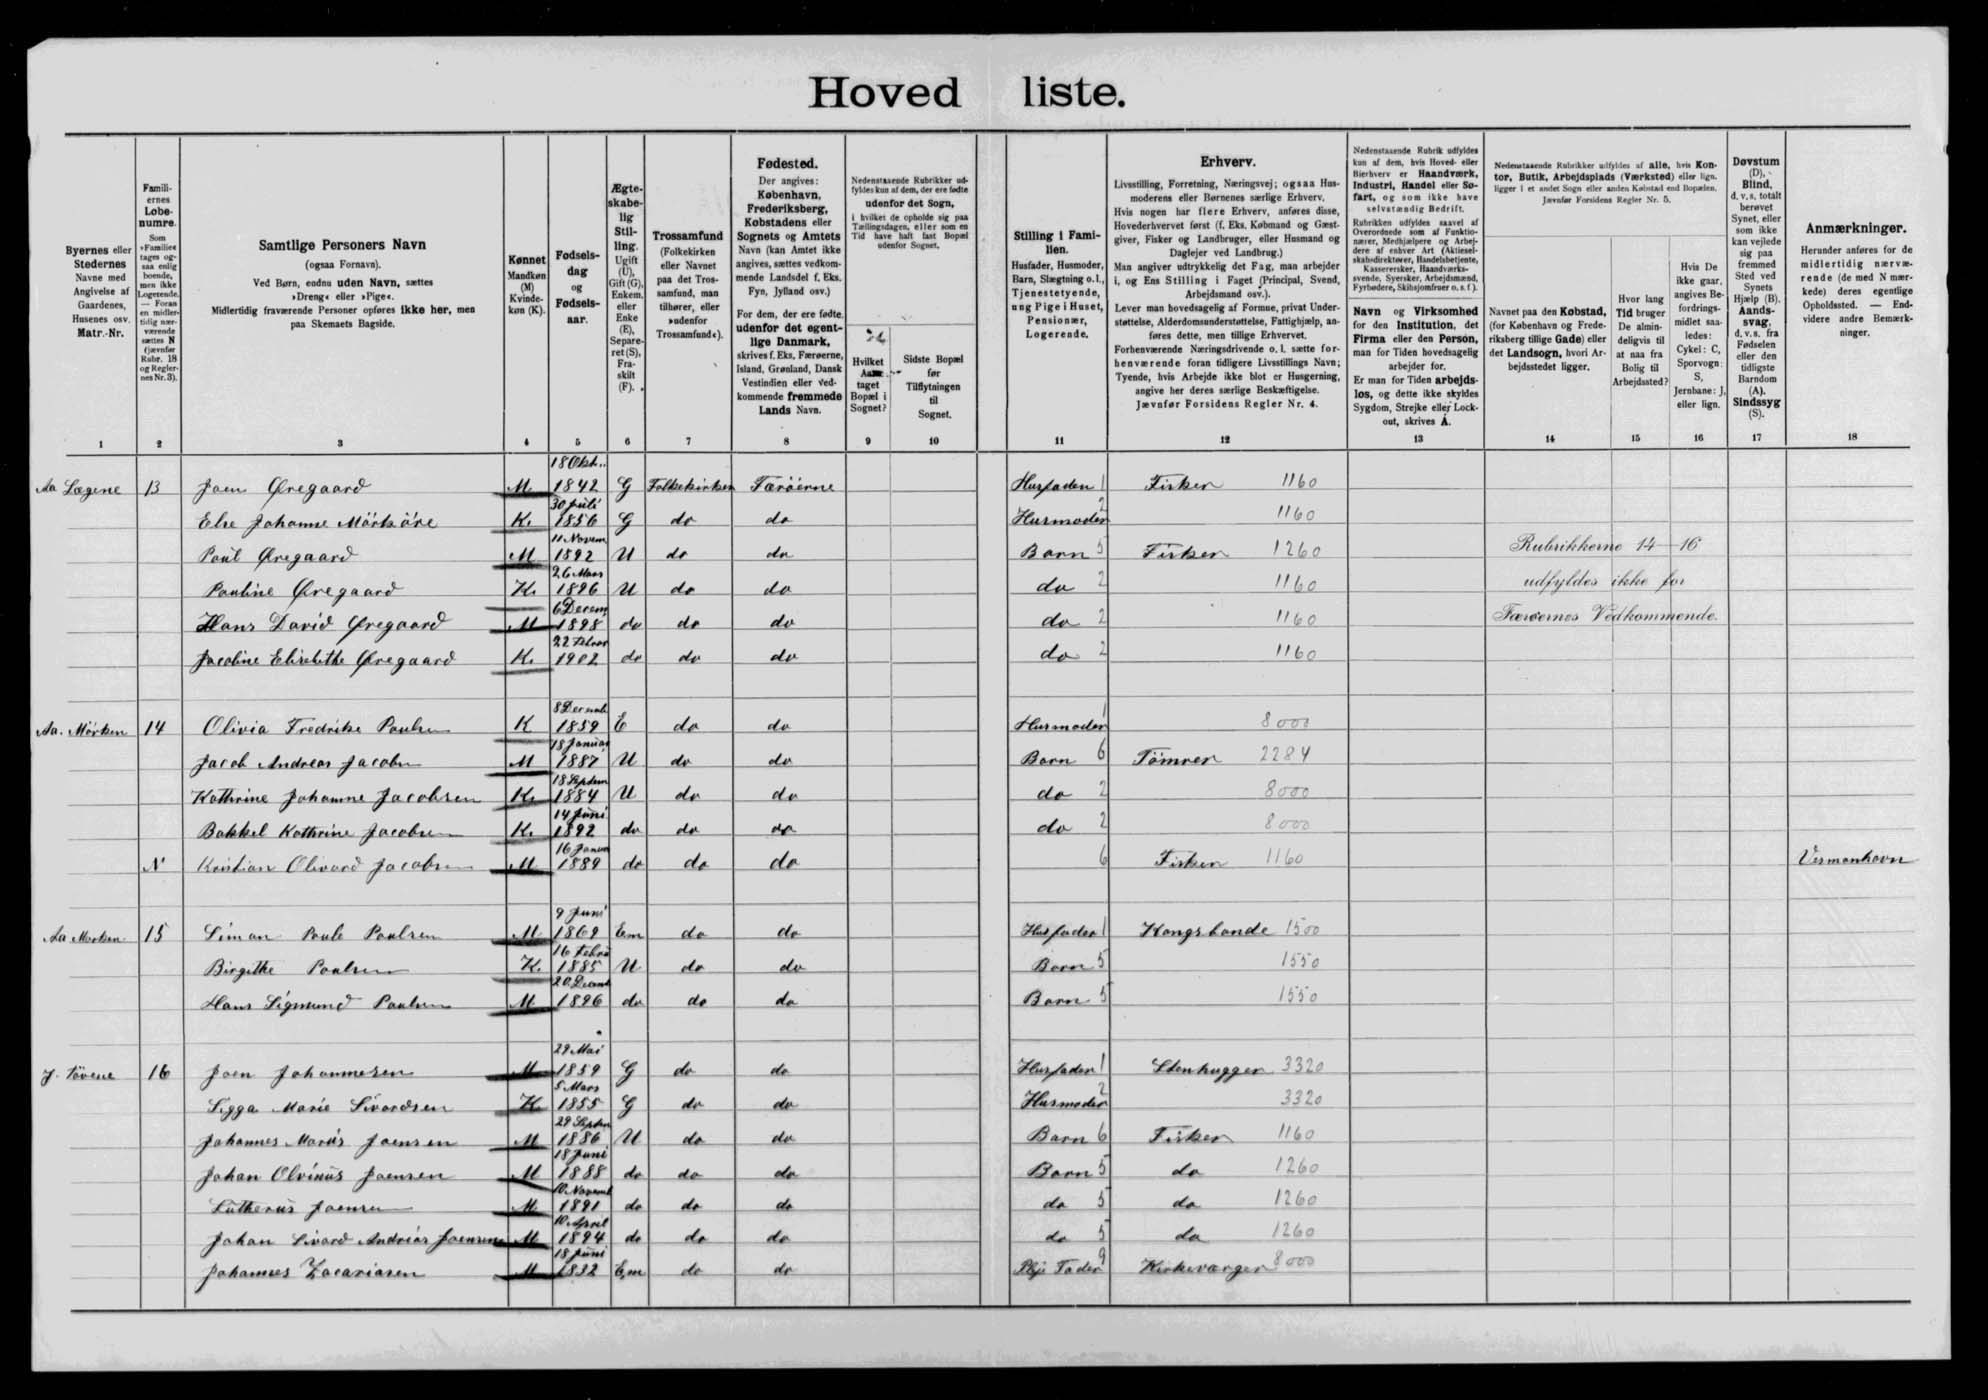 Hoved liste.
Byernes eller Stedernes Navne med Angivelse af Gaardenes, Husenes osv. Matr.-Nr.
Familiernes Løbenumre. Som »Familie« tages ogsaa enlig boende, men ikke Logerende. — Foran en midlertidig nærværende sættes N (jævnfør Rubr. 18 og Regler-nes Nr. 3).
Samtlige Personers Navn (ogsaa Fornavn). Ved Børn, endnu uden Navn, sættes »Dreng« eller »Pige«. Midlertidig fraværende Personer opføres ikke her, men paa Skemaets Bagside.
Kønnet Mandkøn (M) Kvindekøn (K).
Fødselsdag og Fødselsaar.
Ægteskabelig Stilling. Ugift (U), Gift (G), Enkem. eller Enke (E), Separeret (S), Fraskilt (F).
Trossamfund (Folkekirken eller Navnet paa det Trossamfund, man tilhører, eller »udenfor Trossamfund«).
Fødested. Der angives: København, Frederiksberg, Købstadens eller Sognets og Amtets Navn (kan Amtet ikke angives, sættes vedkommende Landsdel f. Eks. Fyn, Jylland osv.) For dem, der ere fødte udenfor det egentlige Danmark, skrives f. Eks. Færøerne, Island, Grønland, Dansk Vestindien eller vedkommende fremmede Lands Navn.
Nedenstaaende Rubrikker udfyldes kun af dem, der ere fødte udenfor det Sogn, i hvilket de opholde sig paa Tællingsdagen, eller som en Tid have haft fast Bopæl udenfor Sognet.
Hvilket Aar taget Bopæl i Sognet?
Sidste Bopæl før Tilflytningen til Sognet.
Stilling i Familien. Husfader, Husmoder, Barn, Slægtning o. l., Tjenestetyende, ung Pige i Huset, Pensionær, Logerende.
Erhverv.
Livsstilling, Forretning, Næringsvej; ogsaa Husmoderens eller Børnenes særlige Erhverv.
Hvis nogen har flere Erhverv, anføres disse, Hovederhvervet først (f. Eks. Købmand og Gæstgiver, Fisker og Landbruger, eller Husmand og Daglejer ved Landbrug.)
Man angiver udtrykkelig det Fag, man arbejder i, og Ens Stilling i Faget (Principal, Svend, Arbejdsmand osv.).
Lever man hovedsagelig af Formue, privat Understøttelse, Alderdomsunderstøttelse, Fattighjælp, anføres dette, men tillige Erhvervet.
Forhenværende Næringsdrivende o. l. sætte forhenværende foran tidligere Livsstillings Navn; Tyende, hvis Arbejde ikke blot er Husgerning, angive her deres særlige Beskæftigelse.
Jævnfør Forsidens Regler Nr. 4.
Nedenstaaende Rubrik udfyldes kun af dem, hvis Hoved- eller Bierhverv er Haandværk, Industri, Handel eller Søfart, og som ikke have selvstændig Bedrift.
Rubrikken udfyldes saavel af Overordnede som af Funktionærer, Medhjælpere og Arbejdere af enhver Art (Aktieselskabsdirektører, Handelsbetjente, Kassererskør, Haandværkssvende, Syersker, Arbejdsmænd, Fyrbødere, Skibsjomfruer o. s. f.).
Navn og Virksomhed for den Institution, det Firma eller den Person, man for Tiden hovedsagelig arbejder for.
Er man for Tiden arbejdsløs, og dette ikke skyldes Sygdom, Strejke eller Lockout, skrives A.
Nedenstaaende Rubrikker udfyldes af alle, hvis Kontor, Butik, Arbejdsplads (Værksted) eller lign. ligger i et andet Sogn eller anden Købstad end Bopælen. Jævnfør Forsidens Regler Nr. 5.
Navnet paa den Købstad, (for København og Frederiksberg tillige Gade) eller det Landsogn, hvori Arbejdsstedet ligger.
Hvor lang Tid bruger De almindeligvis til at naa fra Bolig til Arbejdssted?
Hvis De ikke gaar, angives Befordringsmidlet saaledes: Cykel: C, Sporvogn: S, Jernbane: J, eller lign.
Døvstum (D), Blind, d. v. s. totalt berøvet Synet, eller som ikke kan vejlede sig paa fremmed Sted ved Synets Hjælp (B). Aandssvag, d. v. s. fra Fødselen eller den tidligste Barndom (A). Sindssyg (S).
Anmærkninger. Herunder anføres for de midlertidig nærværende (de med N mærkede) deres egentlige Opholdssted. — Endvidere andre Bemærkninger.
1 2 3 4 5 6 7 8 9 10 11 12 13 14 15 16 17 18
Aa Lægene 13 Joen Øregaard M 18 Okt. 1842 G Folkekirken Færöerne Husfader 1 Fisker 1160
Else Johanne Mörköre K. 30 Juli 1856 G do do Husmoder 2 1160
Poul Øregaard M 11 Novem 1892 U do do Barn 5 Fisker 1260 Rubrikkerne 14-16
Pauline Øregaard K. 26 Mars 1896 U do do do 2 1160 udfyldes ikke for
Hans David Øregaard M 6 Decem 1898 do do do do 2 1160 Færøernes Vedkommende.
Jacobine Elisabethe Øregaard K. 22 Febrar 1902 do do do do 2 1160
Aa. Mörken 14 Olivia Fredrike Poulsen K 8 Decemb 1859 E do do Husmoder 1 8000
Jacob Andreas Jacobsen M 18 Januar 1887 U do do Barn 6 Tömrer 2284
Kathrine Johanne Jacobsen K. 18 Septem 1884 U do do do 2 8000
Bakkel Kathrine Jacobsen K. 14 Juni 1892 do do do do 2 8000
N Kristian Olivard Jacobsen M 16 Januar 1889 do do do 6 Fisker 1160 Vesmanhavn
Aa Mörken 15 Simon Poule Poulsen M 9 Juni 1869 Em do do Husfader 1 Kongsbonde 1500
Birgithe Poulsen K. 16 Febru 1885 U do do Barn 5 1550
Hans Sigmund Poulsen M 20 Decemb 1896 do do do Barn 5 1550
J. Tövene 16 Joen Johannesen M 29 Mai 1859 G do do Husfader 1 Stenhugger 3320
Sigga Marie Sivardsen K 5 Mars 1855 G do do Husmoder 2 3320
Johannes Marius Joensen M 29 Septem 1886 U do do Barn 6 Fisker 1160
Johan Olvinus Joensen M 18 Juni 1888 do do do Barn 5 do 1260
Lutherus Joensen M 10 Novemb 1891 do do do do 5 do 1260
Johan Sivard Andreas Joensen M 10 April 1894 do do do do 5 do 1260
Johannes Zacariasen M 18 Juni 1832 Em do do Plje Fader 9 Kirkeværger 8000